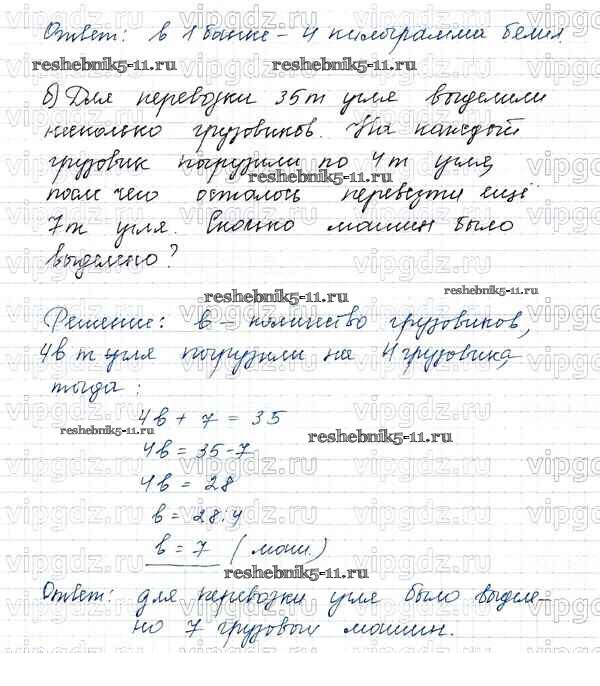 Ответ: в 1 банке – 4 килограмма белил.
reshebnik5-11.ru reshebnik5-11.ru
б) Для перевозки 35 т угля выделили
несколько грузовиков. На каждый
грузовик погрузили по 4 т угля,
reshebnik5-11.ru
после чего осталось перевезти ещё
7 т угля. Сколько машин было
выделено?
reshebnik5-11.ru reshebnik5-11.ru
Решение: в – количество грузовиков,
4в т угля погрузили на 4 грузовика,
тогда:
4в + 7 = 35
reshebnik5-11.ru reshebnik5-11.ru
4в = 35-7
4в = 28
в = 28:4
в = 7 (маш.)
reshebnik5-11.ru
Ответ: для перевозки угля было выделе-
но 7 грузовых машин.
vipgdz.ru vipgdz.ru vipgdz.ru